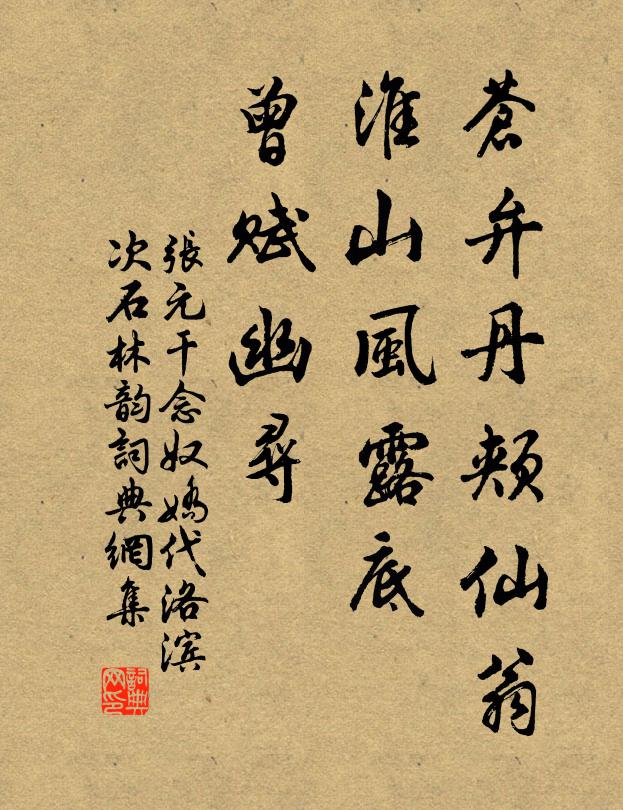 蒼弁丹頰仙翁
淮山風露底
曾賦幽尋
張元干念奴嬌代洛滨
次石林韵詞典網集
詞典网印